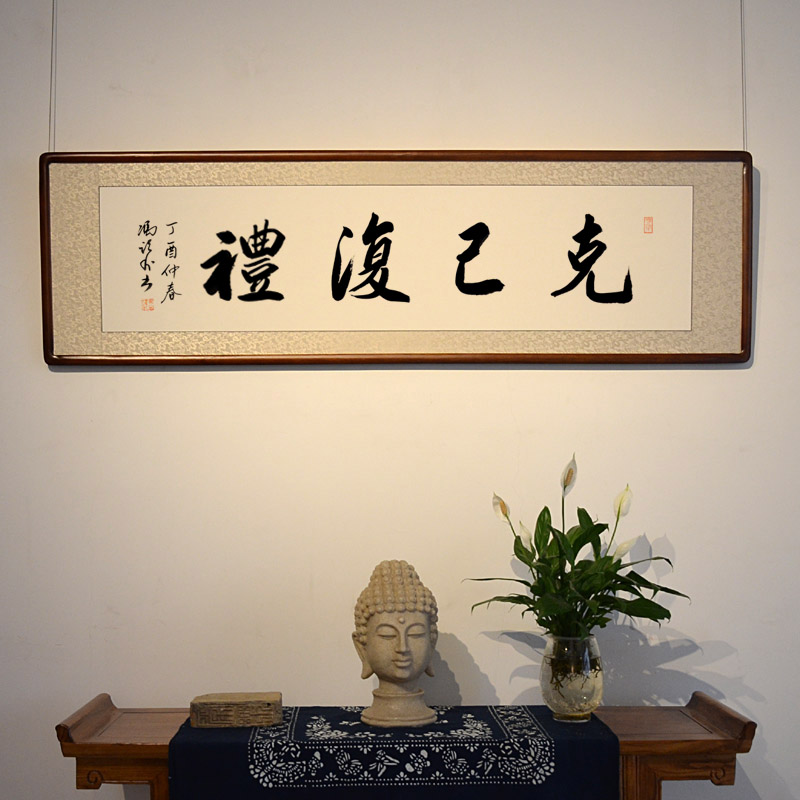 克己復禮
丁酉仲春